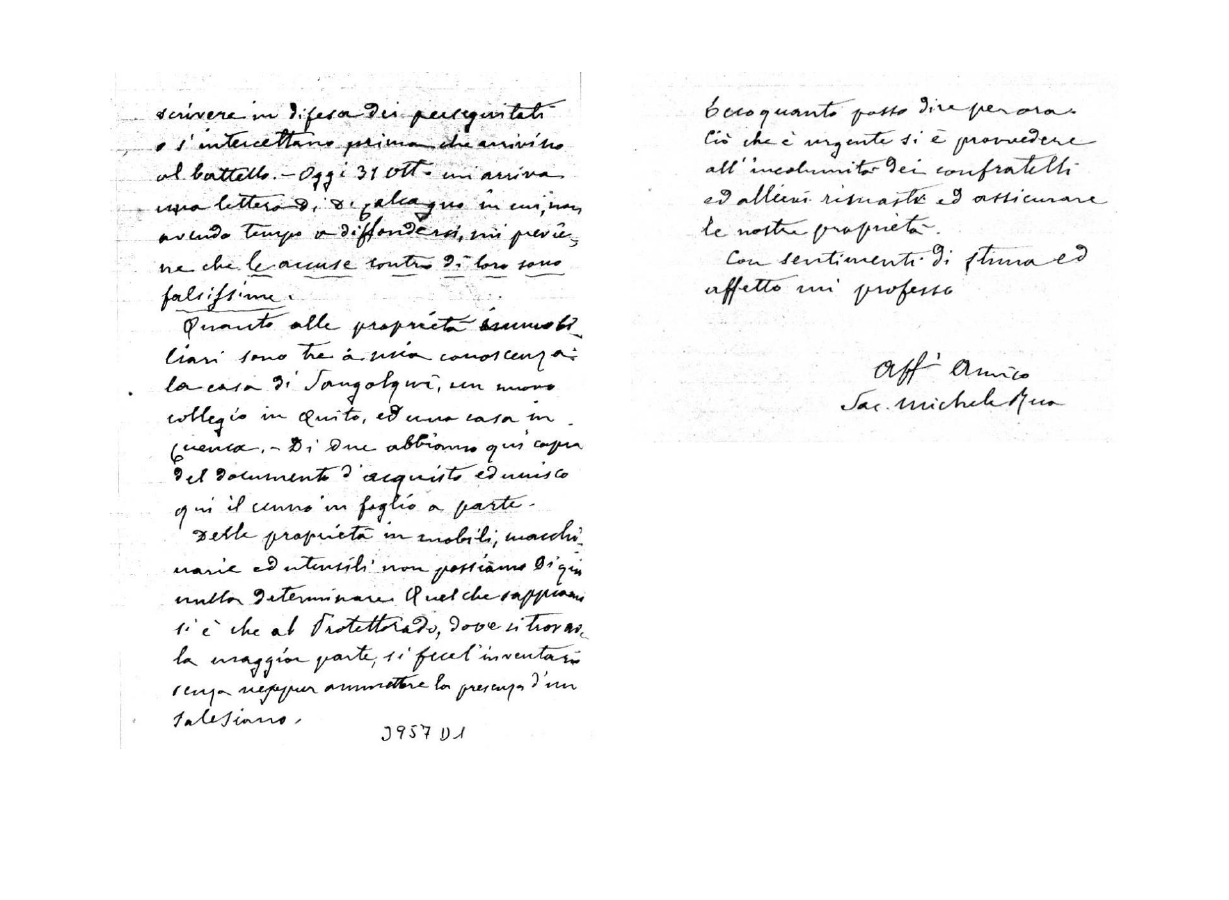 scrivere in difesa dei perseguitati
o s'intercettano prima che arrivino
al battello. - Oggi 31 Ott. mi arriva
una lettera di D. Calcagno in cui, non
avendo tempo a diffondersi, mi previe-
ne che le accuse contro di loro sono
falsissime.
Quanto alle proprietà immobi-
liari sono tre à mia conoscenza:
la casa di Sangolquì, un nuovo
collegio in Quito, ed una casa in
Cuenca. - Di due abbiamo qui copia
del documento d'acquisto ed unisco
qui il cenno in foglio a parte.
Delle proprietà in mobili, macchi-
narie ed utensili non possiamo di qui
nulla determinare. Quel che sappiamo
si è che al Protettorado, dove si trovava
la maggior parte, si fece l'inventario
senza neppur ammettere la presenza d'un
salesiano.
3957 D1
Ecco quanto posso dire per ora.
Ciò che è urgente si è provvedere
all'incolumità dei confratelli
ed allievi rimasti ed assicurare
le nostre proprietà.
Con sentimenti di stima ed
affetto mi professo
Aff. Amico
Sac. Michele Rua